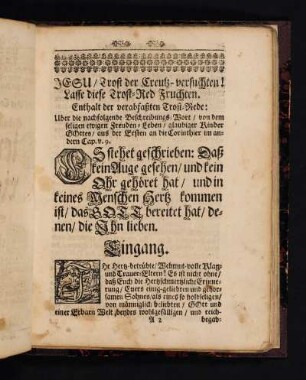 JESU/ Trost der Creutz-versuchten!
Lasse diese Trost-Red Fruchten.
Enthalt der verabfaßten Trost-Rede:
Uber die nachfolgende Beschreibungs-Wort / von dem
seligen ewigen Freuden-Leben / glaubiger Kinder
GOttes / aus der Ersten an die Corinthier im an-
dern Cap. v. 9.
ES stehet geschrieben: Daß
kein Auge gesehen / und kein
Ohr gehöret hat / und in
keines Menschen Hertz kommen
ist / das GOTT bereitet hat / de-
nen / die Ihn lieben.
Eingang.
IHr Hertz-betrübte / Wehmut-volle Klag-
und Trauer-Eltern! Es ist nicht ohn /
daß Euch die Hertzschmertzliche Erinne-
rung / Euers einig-geliebten und
samen Sohnes / als eines so holdseligen /
von männiglich beliebten / GOtt und
einer Erbarn Welt / beydes wohlgefälligen / und reich-
A 2 begab-